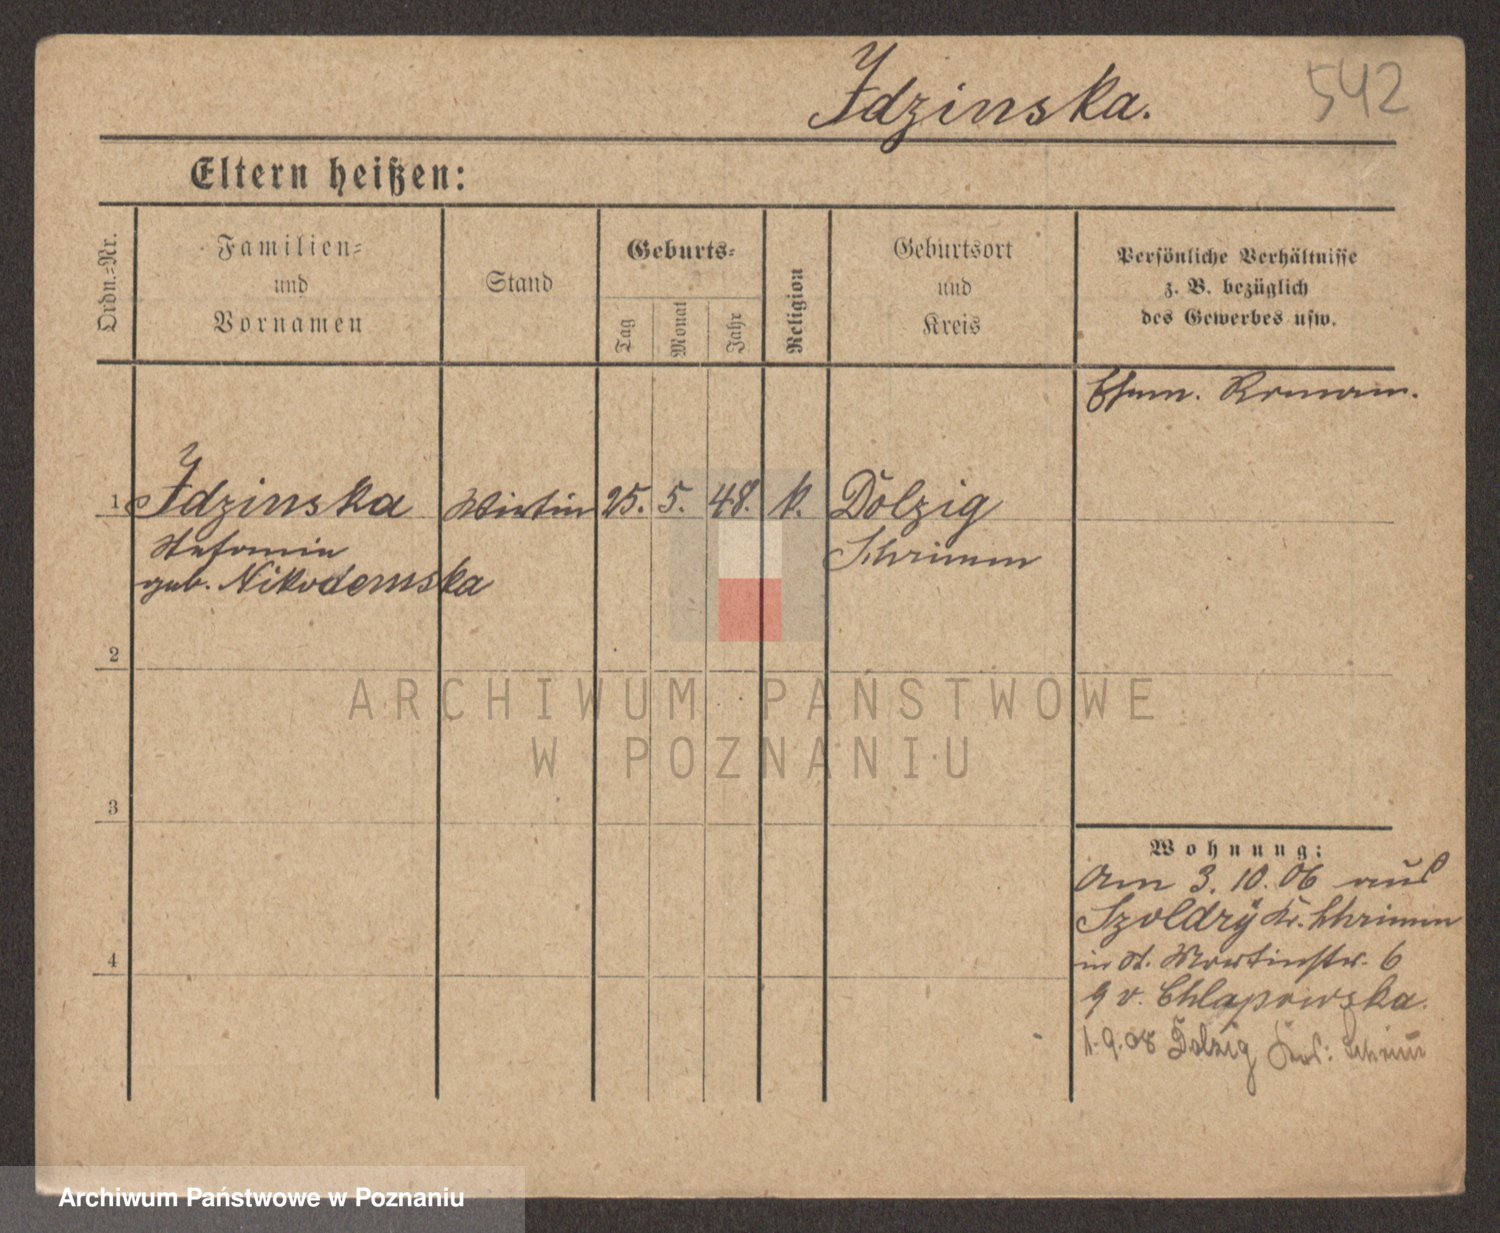 Idzinska.
542
Eltern heißen:
Ordn.-Nr.
Familien-
und
Vornamen
Stand
Geburts-
Tag
Monat
Jahr
Religion
Geburtsort
und
Kreis
Persönliche Verhältnisse
z. B. bezüglich
des Gewerbes usw.
Ehem. Roman.
1 Idzinska Wirtin 25. 5. 48. k. Dolzig
Stefanie Schrimm
geb. Nikodemska
2
3
4
Wohnung:
Am 3. 10. 06 aus
Szoldry Kr. Schrimm
in St. Martinstr. 6
9 v. Chlapowska.
1.9.08 Dolzig Kr: Schrimm
ARCHIWUM PAŃSTWOWE
W POZNANIU
Archiwum Państwowe w Poznaniu